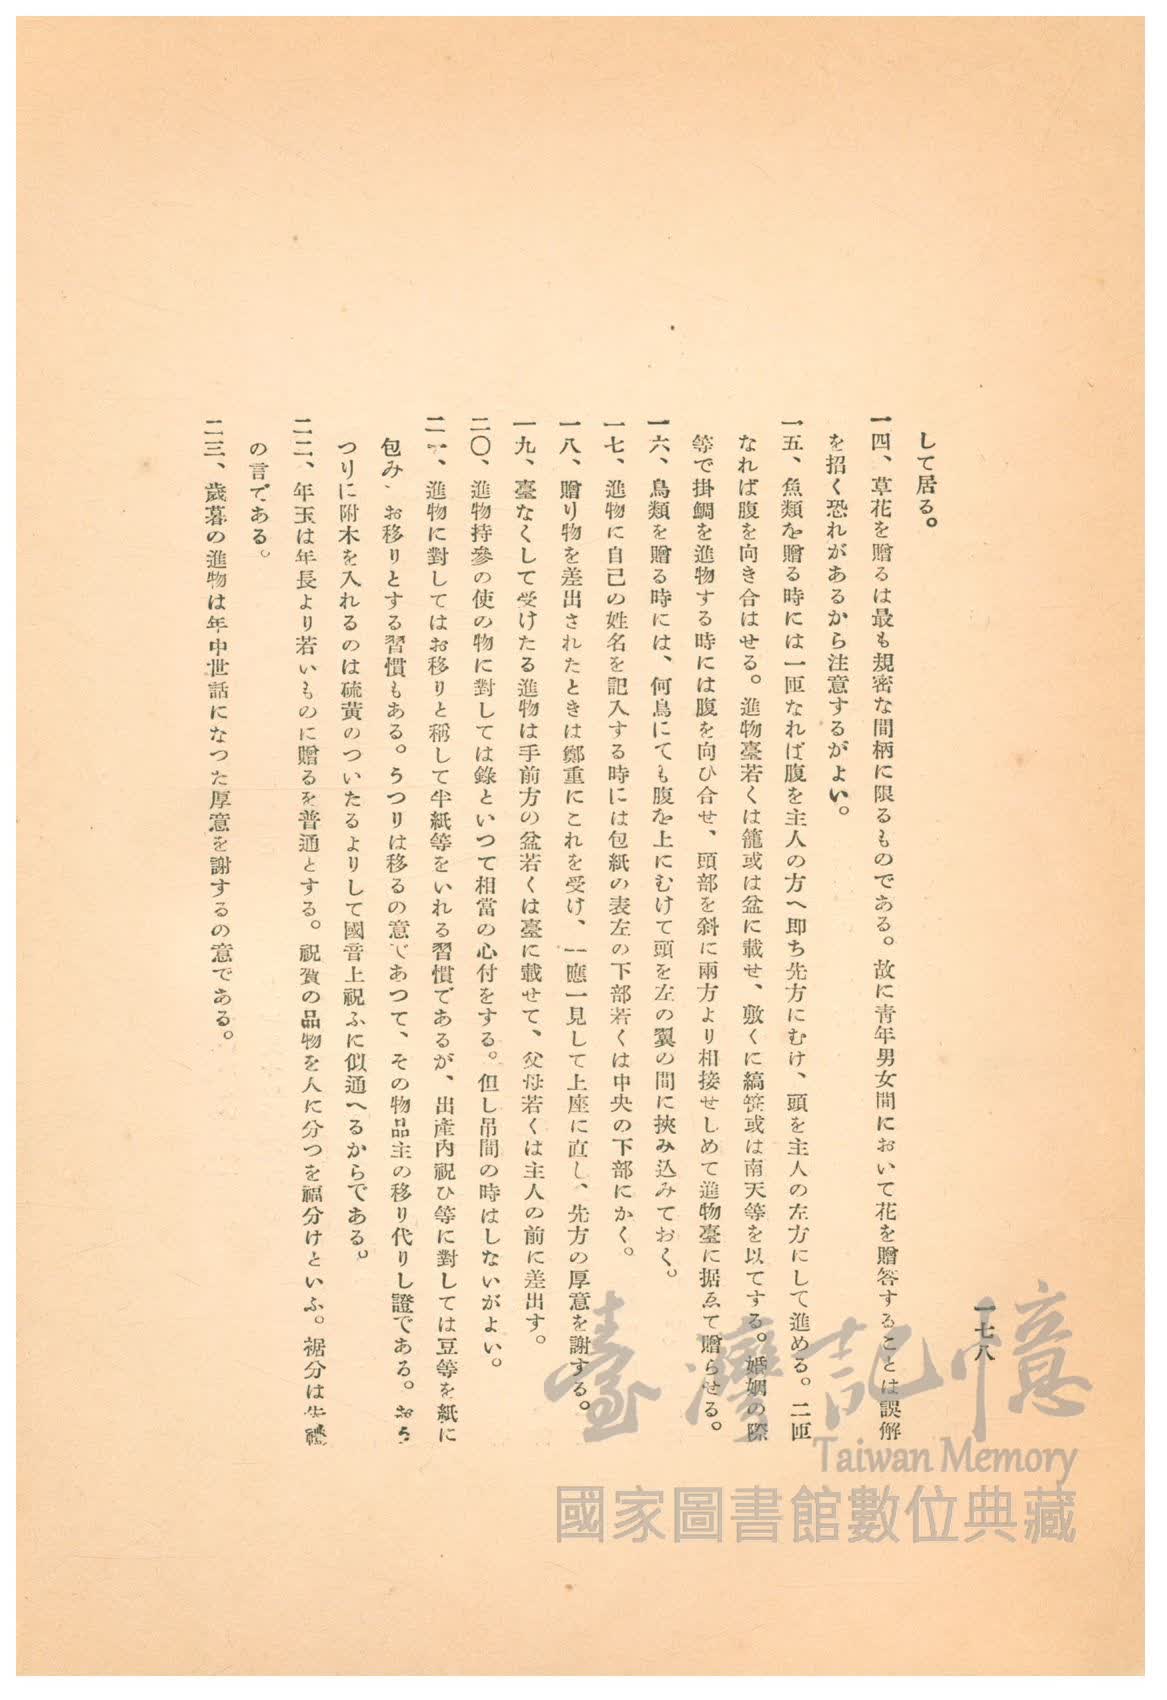 一七八
して居る。
一四、草花を贈るは最も親密な間柄に限るものである。故に青年男女間において花を贈答することは誤解
を招く恐れがあるから注意するがよい。
一五、魚類を贈る時には一匹なれば腹を主人の方へ即ち先方にむけ、頭を主人の左方にして進める。二匹
なれば腹を向き合はせる。進物臺若くは籠或は盆に載せ、敷くに縞笹或は南天等を以てする。婚姻の際
等で掛鯛を進物する時には腹を向ひ合せ、頭部を斜に兩方より相接せしめて進物臺に据ゑて贈らせる。
一六、鳥類を贈る時には、何鳥にても腹を上にむけて頭を左の翼の間に挾み込みておく。
一七、進物に自己の姓名を記入する時には包紙の表左の下部若くは中央の下部にかく。
一八、贈り物を差出されたときは鄭重にこれを受け、一應一見して上座に直し、先方の厚意を謝する。
一九、臺なくして受けたる進物は手前方の盆若くは臺に載せて、父母若くは主人の前に差出す。
二〇、進物持參の使の物に對しては錄といつて相當の心付をする。但し吊間の時はしないがよい。
二一、進物に對してはお移りと稱して半紙等をいれる習慣であるが、出產內祝ひ等に對しては豆等を紙に
包み、お移りとする習慣もある。うつりは移るの意であつて、その物品主の移り代りし證である。おう
つりに附木を入れるのは硫黃のついたるよりして國音上祝ふに似通へるからである。
二二、年玉は年長より若いものに贈るを普通とする。祝賀の品物を人に分つを福分けといふ。裾分は失禮
の言である。
二三、歲暮の進物は年中世話になつた厚意を謝するの意である。
臺灣記憶
Taiwan Memory
國家圖書館數位典藏